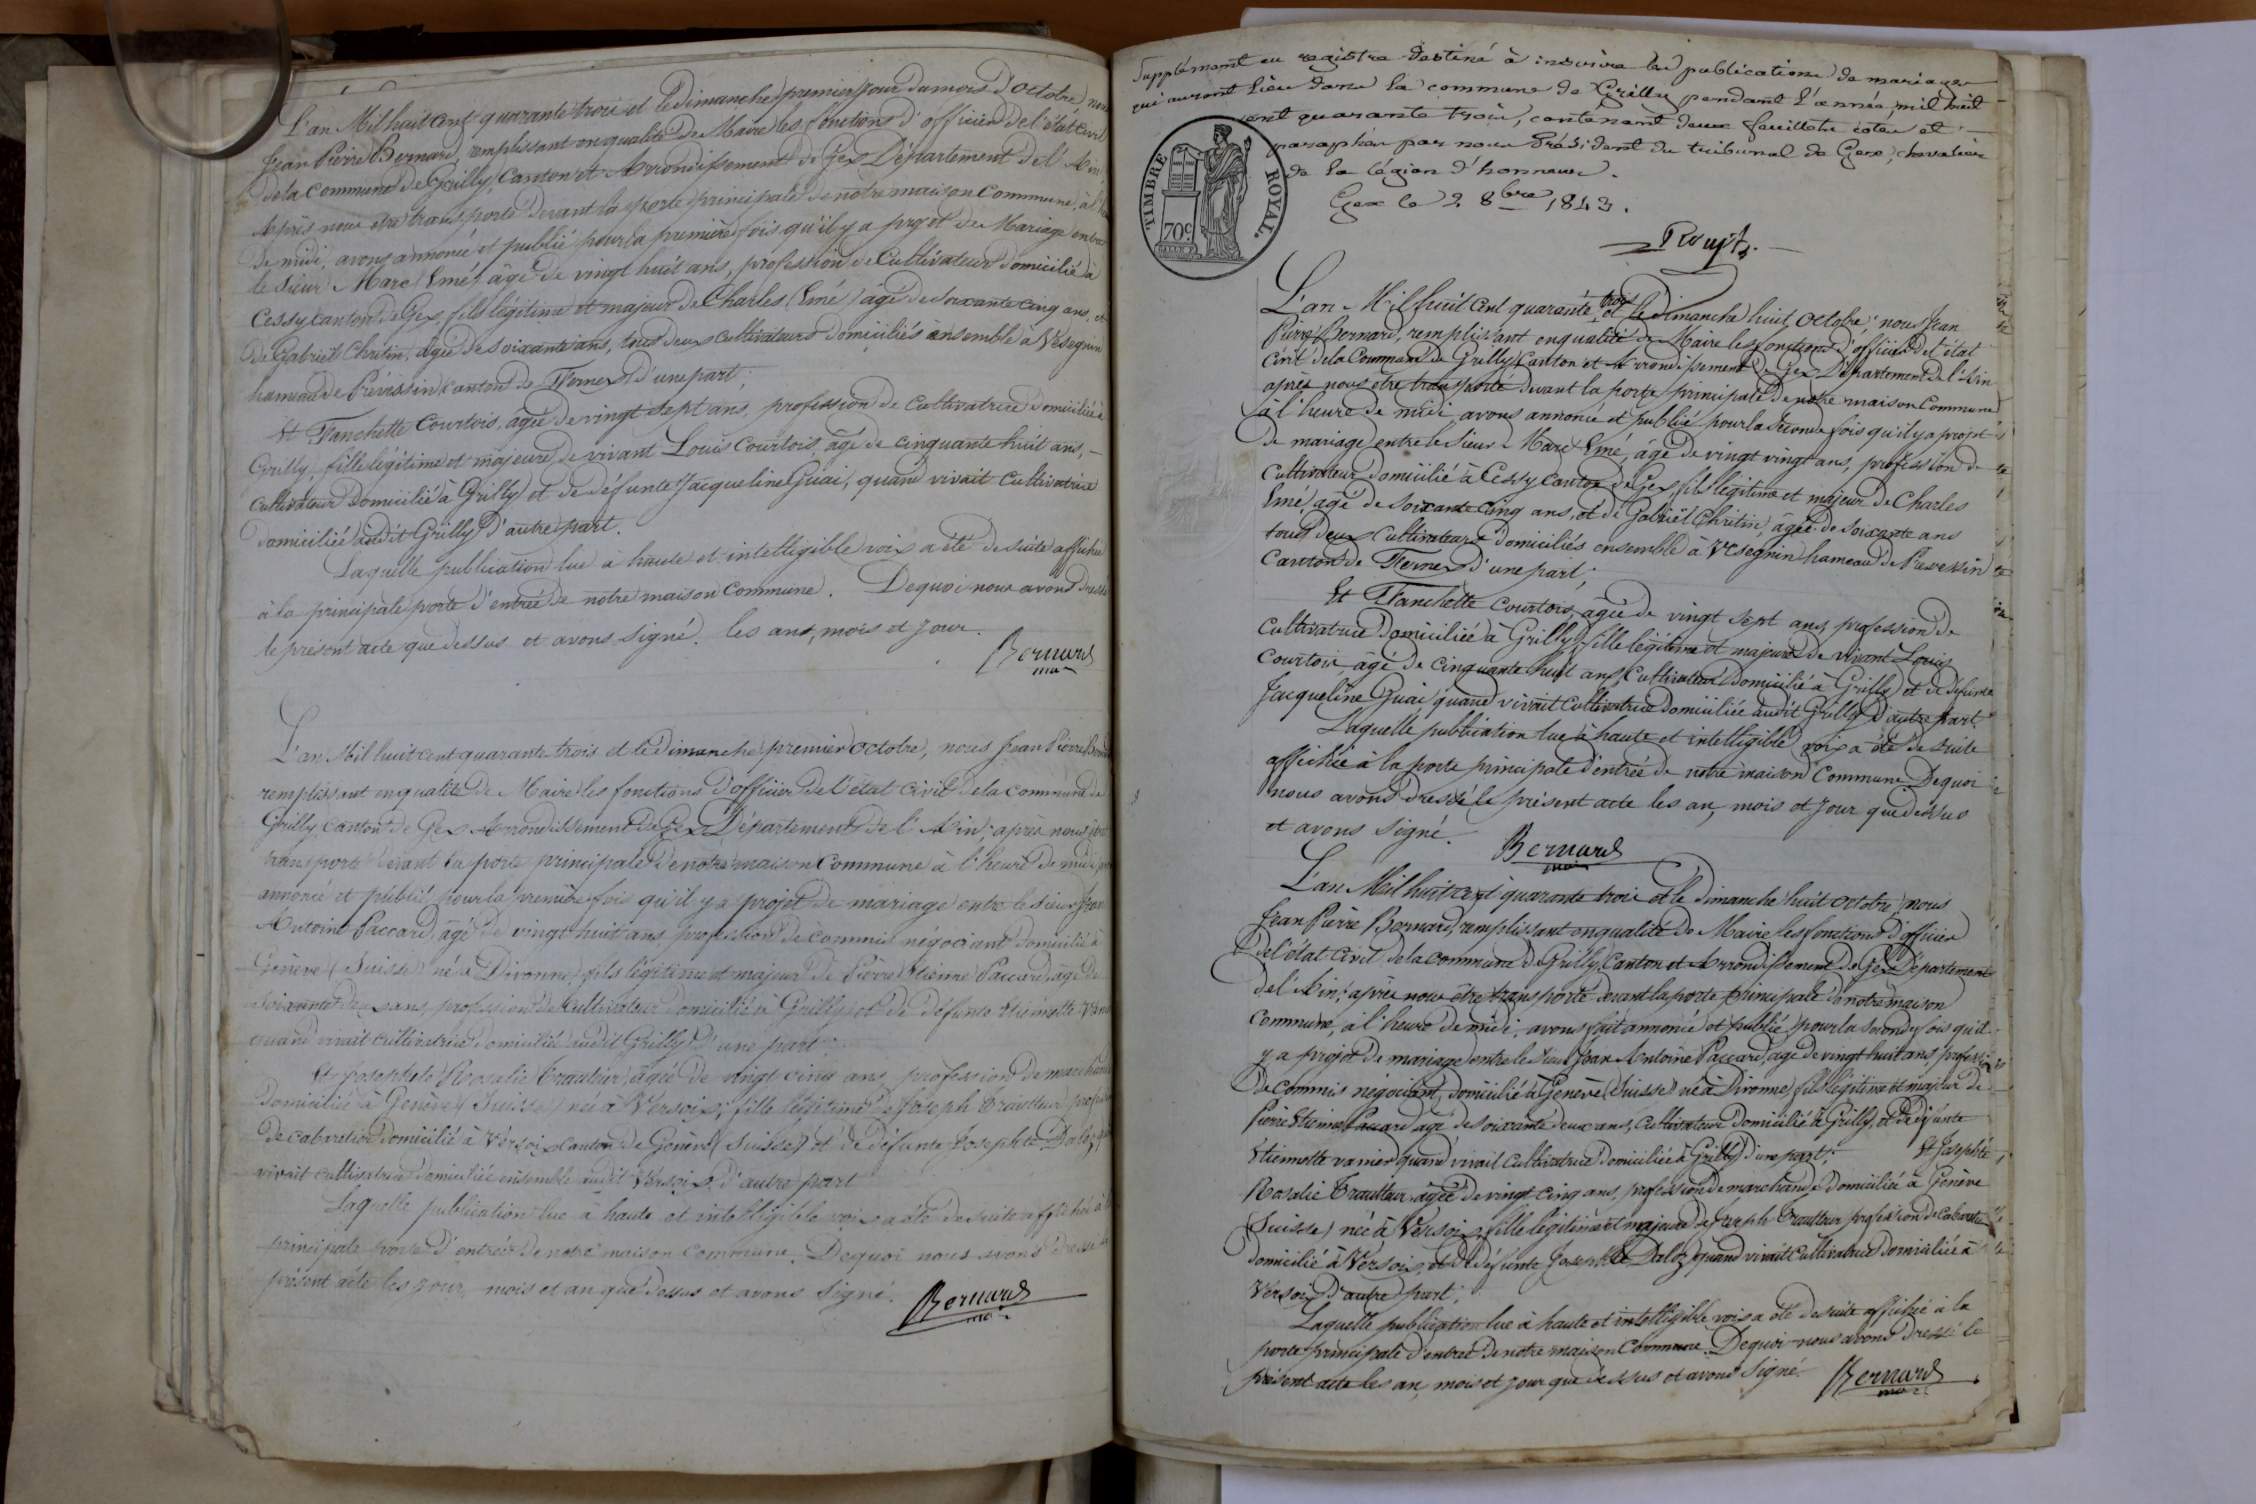 L'an Mil huit cent quarante trois et le Dimanche premier jour du mois d'Octobre, nous
Jean Pierre Bernard, remplissant en qualité de Maire les fonctions d'officier de l'état civil
de la Commune de Grilly, Canton et Arrondissement de Gex Département de l'Ain
Après nous être transporté devant la porte principale de notre maison Commune, à l'heure
de midi, avons annoncé et publié pour la première fois qu'il y a projet de Mariage entre
le Sieur Marc Emé, âgé de vingt huit ans, profession de Cultivateur domicilié à
Cessy canton de Gex, fils légitime et majeur de Charles Emé âgé de soixante cinq ans, et
de Gabriel Chritin, âgée de soixante ans, tous deux cultivateurs domiciliés ensemble à Vésegnin
hameau de Prévissin canton de Ferney d'une part;
Et Fanchette Courtois, âgée de vingt sept ans, profession de Cultivatrice domiciliée à
Grilly, fille légitime et majeure de vivant Louis Courtois, âgé de cinquante huit ans,
cultivateur domicilié à Grilly et de défunte Jacqueline Guai, quand vivait cultivatrice
domiciliée audit Grilly d'autre part.
Laquelle publication lue à haute et intelligible voix a été de suite affichée
à la principale porte d'entrée de notre maison commune. De quoi nous avons dressé
le présent acte que dessus et avons signé. les ans, mois et jour.
Bernard
L'an Mil huit cent quarante trois et le Dimanche premier octobre, nous Jean Pierre Bernard
remplissant en qualité de Maire les fonctions d'officier de l'état civil de la commune de
Grilly Canton de Gex Arrondissement de Gex Département de l'Ain; après nous être
transporté devant la porte principale de notre maison Commune à l'heure de midi
annoncé et publié pour la première fois qu'il y a projet de mariage entre le Sieur Jean
Antoine Paccard, âgé de vingt huit ans profession de commis négociant domicilié à
Genève (Suisse) né à Divonne, fils légitime et majeur de Pierre Etienne Paccard âgé de
soixante deux ans, profession de Cultivateur domicilié à Grilly et de défunte Etiennette
quand vivait cultivatrice domiciliée audit Grilly d'une part;
Et Josephte Rosalie Trautteur, âgée de vingt cinq ans, profession de marchande
domiciliée à Genève (Suisse) née à Versoix, fille légitime de Joseph Trautteur profession
de cabaretier domicilié à Versoix canton de Genève (Suisse) et de défunte Josephte Daloz quand
vivait cultivatrice domiciliée ensemble audit Versoix d'autre part
Laquelle publication lue à haute et intelligible voix a été de suite affichée à la
principale porte d'entrée de notre maison commune. De quoi nous avons dressé le
présent acte les jour, mois et an que dessus et avons signé.
Bernard
Supplément au registre destiné à inscrire les publications de mariages
qui auront lieu dans la commune de Grilly pendant l'année mil huit
cent quarante trois, contenant deux feuillets cotés et
paraphés par nous Président du tribunal de Gex, chevalier
de la légion d'honneur.
Gex le 2 8bre 1843.
TIMBRE ROYAL
70c
L'an Mil huit cent quarante trois et le Dimanche huit Octobre; nous Jean
Pierre Bernard, remplissant en qualité de Maire les fonctions d'officier de l'état
civil de la Commune de Grilly Canton et Arrondissement de Gex Département de l'Ain
après nous être transporté devant la porte principale de notre maison Commune
à l'heure de midi avons annoncé et publié pour la seconde fois qu'il y a projet
de mariage entre le Sieur Marc Emé, âgé de vingt vingt ans, profession de
cultivateur domicilié à Cessy Canton de Gex, fils légitime et majeur de Charles
Emé, âgé de soixante cinq ans, et de Gabriel Chritin, âgée de soixante ans
tous deux cultivateurs domiciliés ensemble à Vesegnin hameau de Prevessin
Canton de Ferney d'une part;
Et Fanchette Courtois, âgée de vingt sept ans, profession de
cultivatrice domiciliée à Grilly, fille légitime et majeure de vivant Louis
Courtois, âgé de cinquante huit ans, Cultivateur domicilié à Grilly et de défunte
Jacqueline Guai quand vivait cultivatrice domiciliée audit Grilly d'autre part.
Laquelle publication lue à haute et intelligible voix a été de suite
affichée à la porte principale d'entrée de notre maison Commune De quoi
nous avons dressé le présent acte les an, mois et jour que dessus
et avons signé.
Bernard
L'an Mil huit cent quarante trois et le dimanche huit Octobre, nous
Jean Pierre Bernard, remplissant en qualité de Maire les fonctions d'officier
de l'état civil de la commune de Grilly, Canton et Arrondissement de Gex Département
de l'Ain; après nous être transporté devant la porte principale de notre maison
commune, à l'heure de midi, avons fait annoncé et publié pour la seconde fois qu'il
y a projet de mariage entre le Sieur Jean Antoine Paccard, âgé de vingt huit ans profession
de commis négociant, domicilié à Genève (Suisse) né à Divonne, fils légitime et majeur de
Pierre Etienne Paccard âgé de soixante deux ans, cultivateur domicilié à Grilly, et de défunte
Etiennette vanier quand vivait cultivatrice domiciliée à Grilly d'une part; Et Josephte
Rosalie Trautteur, âgée de vingt cinq ans, profession de marchande domiciliée à Genève
(Suisse) née à Versoix, fille légitime et majeure de Joseph Trautteur profession de cabaretier
domicilié à Versoix, et de défunte Josephte Daloz quand vivait cultivatrice domiciliée à
Versoix d'autre part;
Laquelle publication lue à haute et intelligible voix a été de suite affichée à la
porte principale d'entrée de notre maison Commune. De quoi nous avons dressé le
présent acte les an, mois et jour que dessus et avons signé.
Bernard